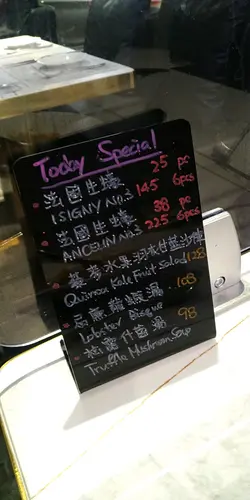 Today Special
法國生蠔 25 pc
ISIGNY NO.3 145 6pcs
法國生蠔 38 pc
ANCELIN NO.3 225 6pcs
藜麥水果羽衣甘藍沙律
Quinoa Kale Fruit Salad 128
龍蝦湯 108
Lobster Bisque
什菌湯 98
Truffle Mushroom Soup